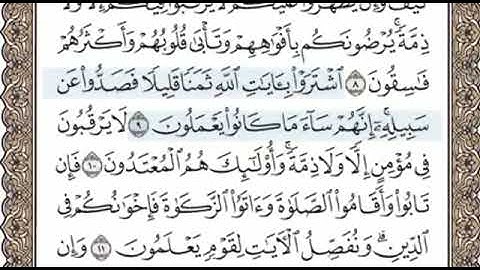 كَيْفَ وَإِن يَظْهَرُوا۟ عَلَيْكُمْ لَا يَرْقُبُوا۟ فِيكُمْ إِلًّا وَلَا
ذِمَّةً ۚ يُرْضُونَكُم بِأَفْوَٰهِهِمْ وَتَأْبَىٰ قُلُوبُهُمْ وَأَكْثَرُهُمْ
فَـٰسِقُونَ ٨ ٱشْتَرَوْا۟ بِـَٔايَـٰتِ ٱللَّهِ ثَمَنًا قَلِيلًا فَصَدُّوا۟ عَن
سَبِيلِهِۦٓ ۚ إِنَّهُمْ سَآءَ مَا كَانُوا۟ يَعْمَلُونَ ٩ لَا يَرْقُبُونَ
فِى مُؤْمِنٍ إِلًّا وَلَا ذِمَّةً ۚ وَأُو۟لَـٰٓئِكَ هُمُ ٱلْمُعْتَدُونَ ١٠ فَإِن
تَابُوا۟ وَأَقَامُوا۟ ٱلصَّلَوٰةَ وَءَاتَوُا۟ ٱلزَّكَوٰةَ فَإِخْوَٰنُكُمْ فِى
ٱلدِّينِ ۗ وَنُفَصِّلُ ٱلْـَٔايَـٰتِ لِقَوْمٍ يَعْلَمُونَ ١١ وَإِن